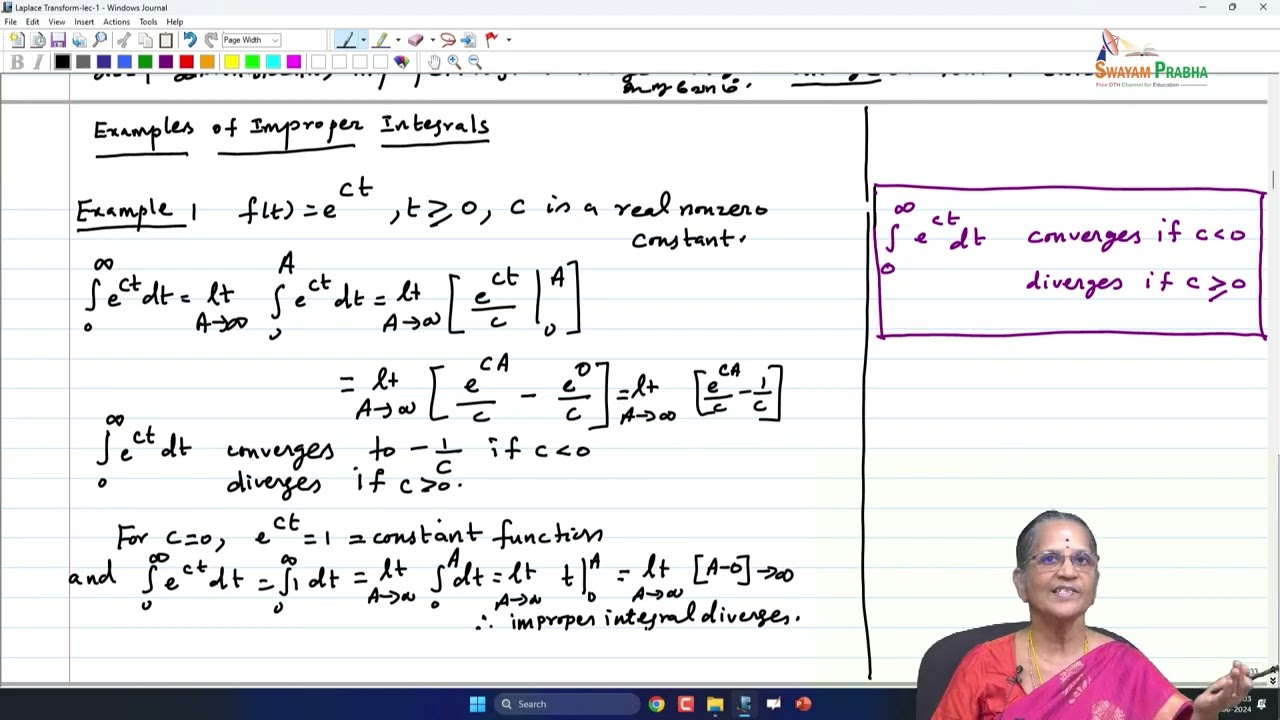 Laplace Transform-lec-1 - Windows Journal
File Edit View Insert Actions Tools Help
Page Width
B I
SWAYAM PRABHA
Free DTH Channel for Education
Examples of Improper Integrals
Example 1 f(t) = e^{ct}, t ≥ 0, c is a real nonzero
constant.
∫_0^∞ e^{ct} dt = lt_{A→∞} ∫_0^A e^{ct} dt = lt_{A→∞} [ e^{ct}/c |_0^A ]
= lt_{A→∞} [ e^{cA}/c - e^0/c ] = lt_{A→∞} [ e^{cA}/c - 1/c ]
∫_0^∞ e^{ct} dt converges to -1/c if c<0
diverges if c>0.
For c=0, e^{ct} = 1 = constant function
and ∫_0^∞ e^{ct} dt = ∫_0^∞ 1 dt = lt_{A→∞} ∫_0^A dt = lt_{A→∞} t|_0^A = lt_{A→∞} [A-0] → ∞
∴ improper integral diverges.
∫_0^∞ e^{ct} dt converges if c<0
diverges if c ≥ 0
Search